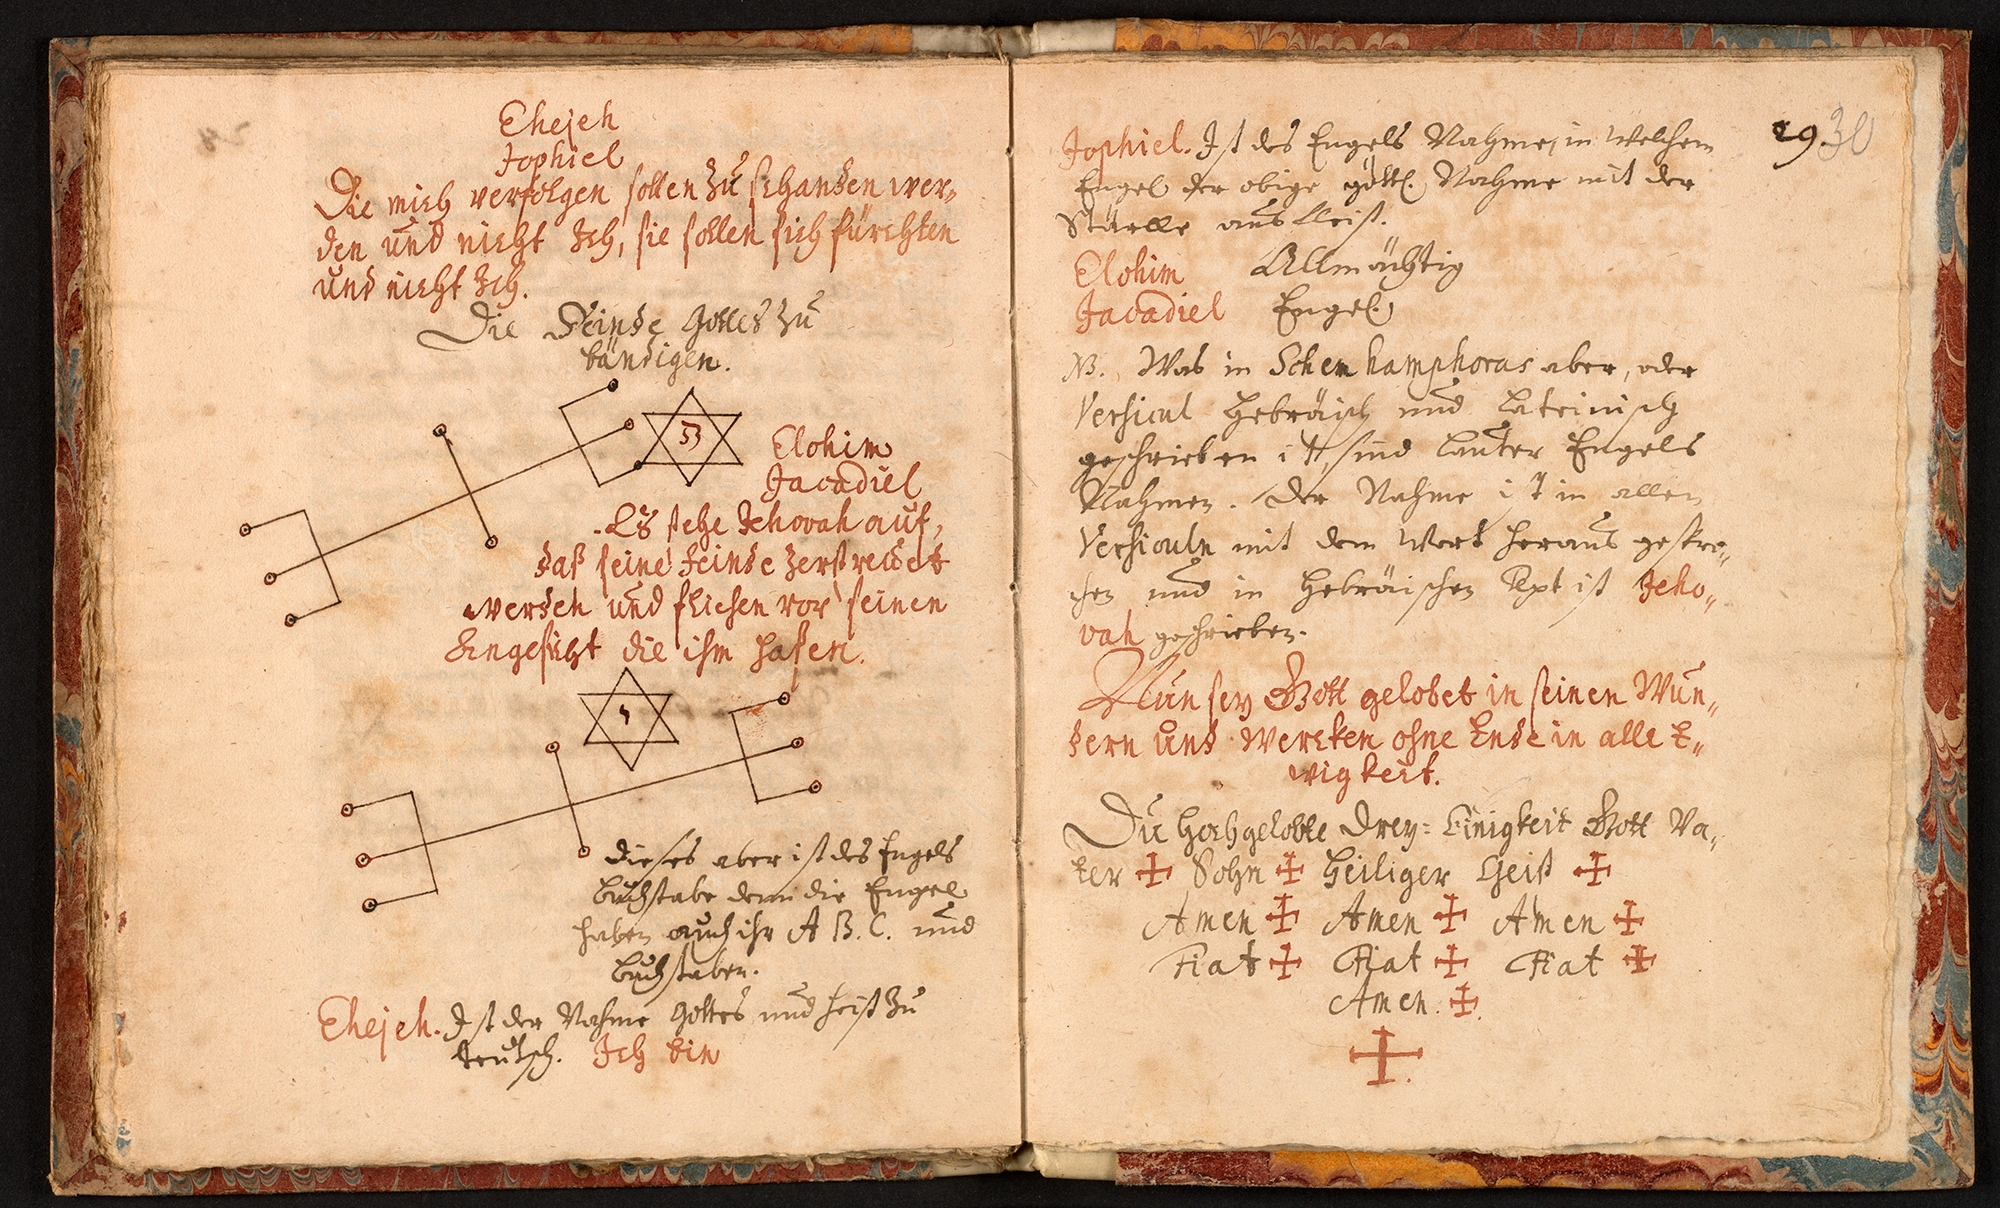 Ehejeh
Jophiel
Die mich verfolgen sollen zu schanden wer=
den und nicht Ich, sie sollen sich fürchten
und nicht Ich.
Die Feinde Gottes zu
bändigen.
53
Elohim
Javadiel
Es stehe Jehovah auf,
daß seine Feinde zerstreuet
werden und fliehen vor seinen
Angesicht die ihm hassen.
dieses aber ist des Engels
Buchstabe denn die Engel
haben auch ihr A B. C. und
Buchstaben.
Ehejeh. Ist der Nahme Gottes und heist zu
teutsch. Ich bin
29. 30
Jophiel. Ist des Engels Nahme, in welchem
Engel der obige göttl. Nahme mit der
Stärcke aus
Elohim Allmächtig
Javadiel Engel.
NB. Was in Schemhamphoras aber, oder
Versicul Hebräisch und Lateinisch
geschrieben ist, sind lauter Engels
Nahmen. Der Nahme ist in allen
Versiculn mit dem Wort heraus gestri=
chen und in Hebräischen Text ist Jeho=
vah geschrieben.
Nun sey Gott gelobet in seinen Wun=
dern und Wercken ohne Ende in alle E=
wigkeit.
Du Hochgelobte Drey=Einigkeit Gott Va=
ter ✠ Sohn ✠ Heiliger Geist ✠
Amen ✠ Amen ✠ Amen ✠
Fiat ✠ Fiat ✠ Fiat ✠
Amen. ✠.
✠.